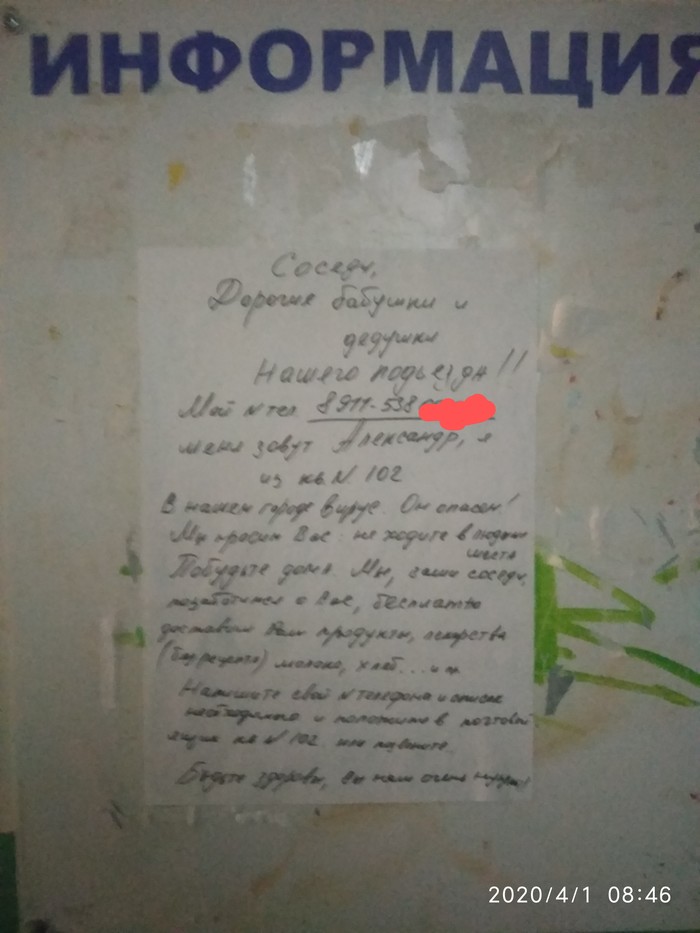 ИНФОРМАЦИЯ
Соседи,
Дорогие бабушки и
дедушки
Нашего подъезда!!
Мой N тел 8911-538
меня зовут Александр, я
из кв. N 102
В нашем городе вирус. Он опасен!
Мы просим Вас: не ходите в людные
места
Побудьте дома. Мы, ваши соседи,
позаботимся о Вас, бесплатно
доставим Вам продукты, лекарства
(без рецепта) молоко, хлеб... и т
Напишите свой N телефона и список
необходимого и положите в почтовый
ящик кв N 102 или позвоните.
Будьте здоровы, вы нам очень нужны!
2020/4/1 08:46